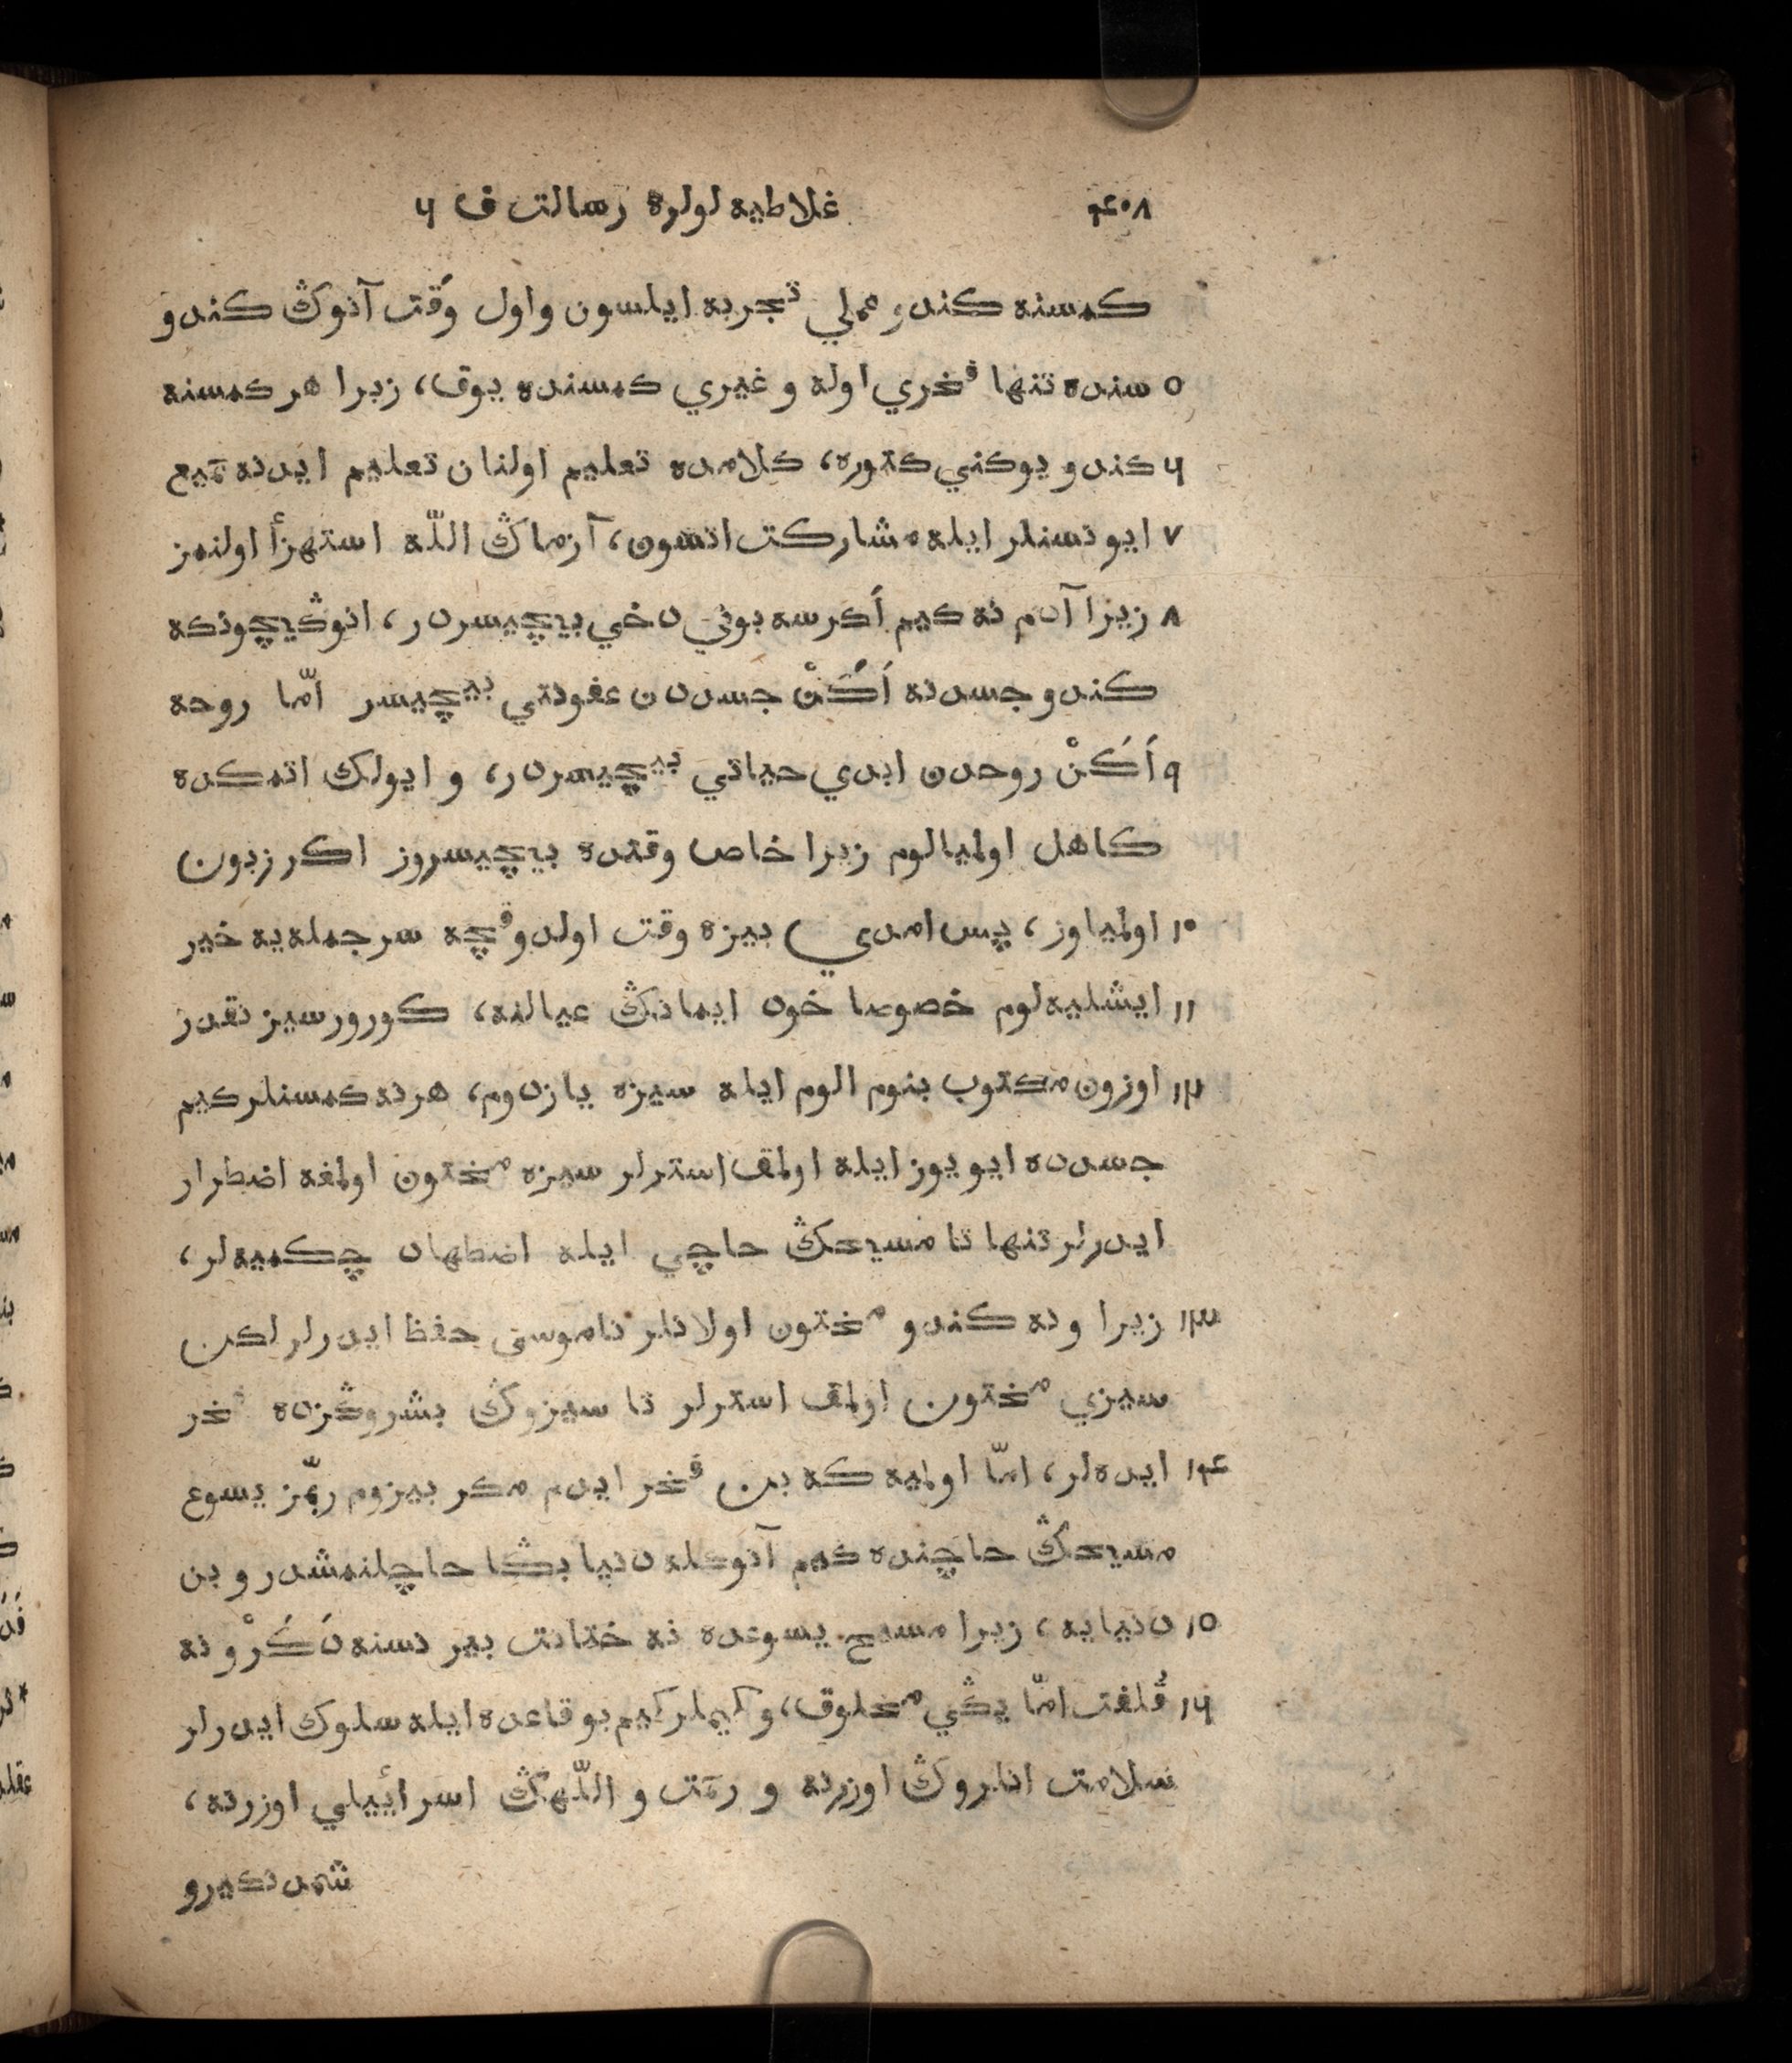 ۴۰۸ غلاطیه لولره رسالت ف ۶
كمسنه كندو عملي تجربه ايلسون واول وقت آنوڭ كندو
۵ سنده تنها فخري اوله و غيري كمسنده يوق، زيرا هر كمسنه
۶ كندو يوكني كتوره، كلامده تعليم اولنان تعليم ايدنه جميع
۷ ايو نسنلر ايله مشاركت اتسون، آزماڭ اللّه استهزأ اولنمز
۸ زيرا آدم نه كيم أكرسه بوني دخي بيچيسردر، انوڭيچونكه
كندو جسدنه أَكَنْ جسددن عفونتي بيچيسر امّا روحه
۹ أَكَنْ روحدن ابدي حياتي بيچيسردر، و ايولك اتمكده
كاهل اولميالوم زيرا خاص وقتده بيچيسروز اكر زبون
۱۰ اولمياوز، پس امدي بيزه وقت اولدوقچه سر جمله‌يه خير
۱۱ ايشليه‌لوم خصوصا خود ايمانڭ عيالنه، كورورسيز نقدر
۱۲ اوزون مكتوب بنوم الوم ايله سيزه يازدوم، هر نه كمسنلر كيم
جسدده ايو يوز ايله اولمق استرلر سيزه مختون اولمغه اضطرار
ايدرلر تنها تا مسيحڭ حاچي ايله اضطهاد چكميه‌لر،
۱۳ زيرا و نه كندو مختون اولانلر ناموسى حفظ ايدرلر لكن
سيزي مختون اولمق استرلر تا سيزوڭ بشروڭزده فخر
۱۴ ايده‌لر، امّا اولميه كه بن فخر ايدم مكر بيزوم ربّمز يسوع
مسيحڭ حاچنده كيم آنوكله دنيا بڭا حاچلنمشدر و بن
۱۵ دنيايه، زيرا مسيح يسوعده نه ختانت بير نسنه دَكَرْ و نه
۱۶ قُلفت امّا يڭي مخلوق، و كيملر كيم بو قاعده ايله سلوك ايدرلر
سلامت انلروڭ اوزرنه و رحمت و اللّهڭ اسرائيلي اوزرنه،
شمدنكيرو